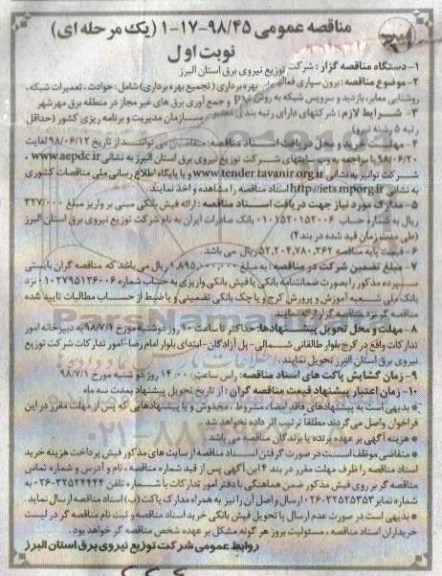 مناقصه عمومی ۹۸/۴۵-۱۷-۱ (یک مرحله ای)
نوبت اول
۱- دستگاه مناقصه گزار: شرکت توزیع نیروی برق استان البرز
۲- موضوع مناقصه: برون سپاری بهره برداری (تجمیع بهره برداری) شامل: حوادث، تعمیرات شبکه،
روشنایی معابر، بازدید و سرویس شبکه به روش PM و جمع آوری برق های غیر مجاز در منطقه برق مهرشهر
۳- شرایط لازم: شرکتهای دارای رتبه بندی سازمان مدیریت و برنامه ریزی کشور (حداقل
رتبه ۵ رشته نیرو)
۴- مهلت خرید و محل دریافت اسناد مناقصه: متقاضیان می توانند از تاریخ ۹۸/۰۶/۱۲ لغایت
۹۸/۰۶/۲۰ با مراجعه به وب سایتهای شرکت توزیع نیروی برق استان البرز به نشانی www.aepdc.ir،
شرکت توانیر به نشانی www.tender.tavanir.org.ir و یا پایگاه اطلاع رسانی ملی مناقصات کشوری
به نشانی http://iets.mporg.ir اسناد مناقصه را مشاهده و اخذ نمایند.
۵- مدارک مورد نیاز جهت دریافت اسناد مناقصه: ارائه فیش بانکی مبنی بر واریز مبلغ ۳۲۷/۰۰۰
ریال به شماره حساب ۰۱۰۱۵۲۰۱۵۲۰۰۶ بانک صادرات ایران به نام شرکت توزیع نیروی برق استان البرز
(طی مدت زمان قید شده در بند ۴)
۶- قیمت پایه مناقصه ۵۲,۲۰۴,۷۸۰,۲۶۲ ریال می باشد.
۷- مبلغ تضمین شرکت در مناقصه: به مبلغ ۱,۸۹۵,۰۰۰,۰۰۰ ریال می باشد که مناقصه گران بایستی
سپرده مذکور را بصورت ضمانتنامه بانکی یا فیش بانکی واریزی به حساب شماره ۰۱۰۲۷۹۵۱۳۶۰۰۶ نزد
بانک ملی شعبه آموزش و پرورش کرج و یا چک بانکی تضمینی و یا ضبط از حساب مطالبات تایید شده
مناقصه گر نزد مناقصه گزار ارائه نمایند.
۸- مهلت و محل تحویل پیشنهادها: حداکثر تا ساعت ۹۰ روز دوشنبه مورخ ۹۸/۷/۱ به دبیرخانه امور
تدارکات واقع در کرج بلوار طالقانی شمالی- پل آزادگان- ابتدای بلوار امام رضا- امور تدارکات شرکت توزیع
نیروی برق استان البرز تحویل نمایند.
۹- زمان گشایش پاکت های اسناد مناقصه: راس ساعت ۱۴:۰۰ روز دوشنبه مورخ ۹۸/۷/۱
۱۰- زمان اعتبار پیشنهاد قیمت مناقصه گران: از تاریخ تحویل پیشنهاد بمدت سه ماه
* بدیهی است به پیشنهادهای فاقد امضاء، مشروط، مخدوش و یا پیشنهادهایی که پس از مهلت مقرر در این
فراخوان واصل می گردند مطلقا ترتیب اثر داده نخواهد شد.
* هزینه آگهی بر عهده برنده یا برندگان مناقصه می باشد
* متقاضی موظف است در صورت گرفتن اسناد مناقصه از سایت های مذکور فیش پرداخت هزینه خرید
اسناد مناقصه را ظرف مهلت مقرر در بند ۴ این آگهی پس از قید شماره مناقصه، نام و آدرس و شماره تماس
مناقصه گر بر روی فیش مذکور ضمن هماهنگی با دفتر امور تدارکات با شماره تلفن ۳۲۵۲۴۴۲۴-۰۲۶ به
شماره نمابر ۳۲۵۲۵۳۵۳-۰۲۶ ارسال و اصل آن را نیز به همراه مدارک پاکت (ب) اسناد مناقصه ارسال نماید.
* بدیهی است در صورت عدم ارسال یا تحویل فیش بانکی خرید اسناد مناقصه و ثبت نام مناقصه گر در لیست
خریداران اسناد مناقصه، مسئولیت بروز هر گونه مشکل بر عهده شخص مناقصه گر خواهد بود.
روابط عمومی شرکت توزیع نیروی برق استان البرز